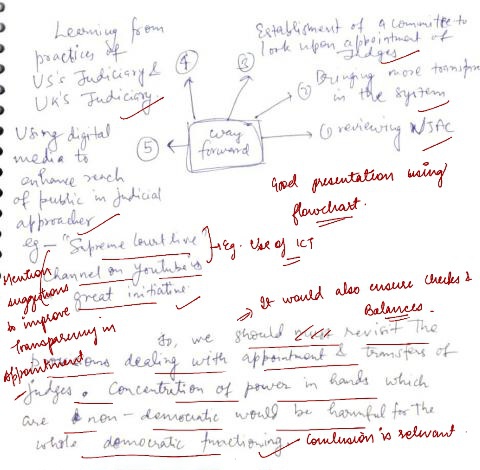 Learning from
practices of
US's Judiciary &
UK's Judiciary.
④
③
Establishment of a committee to
look upon appointment of
Judges
② Bringing more transpa
in the system
① reviewing NJAC
way
forward
⑤
Using digital
media to
enhance reach
of public in judicial
approaches
eg - "Supreme Court live"
Channel on youtube is
great initiative.
Eg. Use of ICT
Good presentation using
flowchart.
Mention
suggestions
to improve
Transparency in
Appointment
It would also ensure checks &
Balances.
So, we should revisit the
provisions dealing with appointment & transfers of
judges. Concentration of power in hands which
are non-democratic would be harmful for the
whole democratic functioning.
Conclusion is relevant.